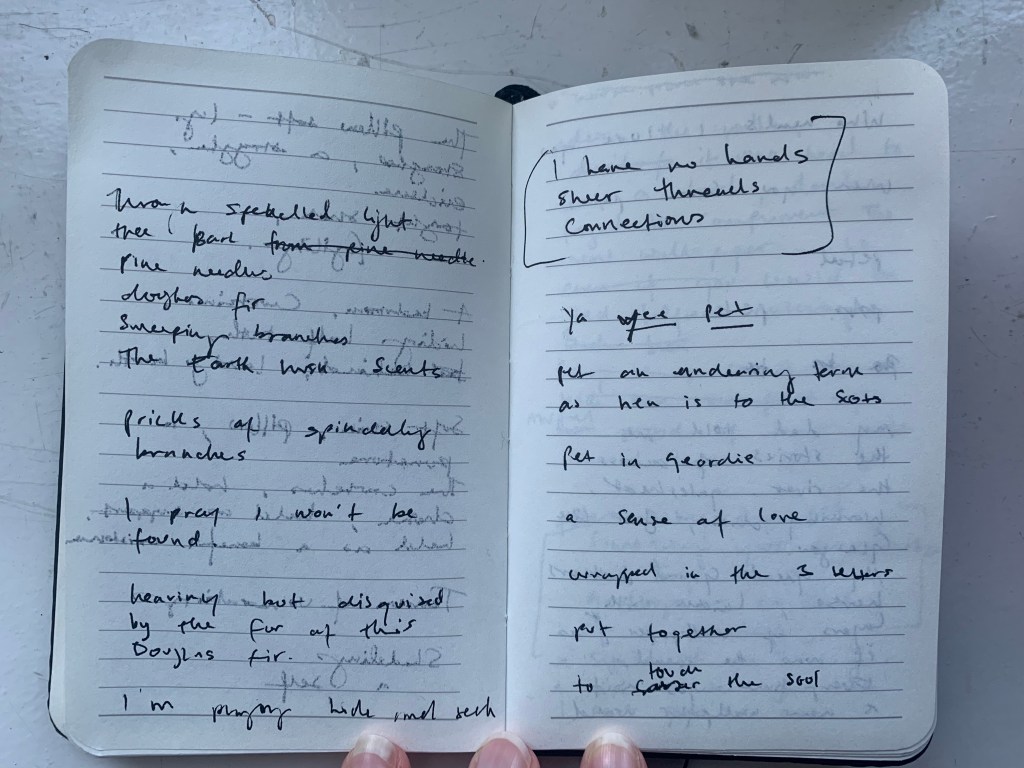 Through speckelled light
the bark from pine needle.
pine needles
doughas fir
Sweeping branches
The Earth musk scents
pricks of spindely
branches
I pray I won't be
found
heaving but disguised
by the fur of this
Douglas fir.
I'm playing hide and seek
I have no hands
sheer threads
connections
Ya pet
pet an endearing term
as hen is to the Scots
Pet in Geordie
a sense of love
wrapped in the 3 letters
put together
to touch the soul